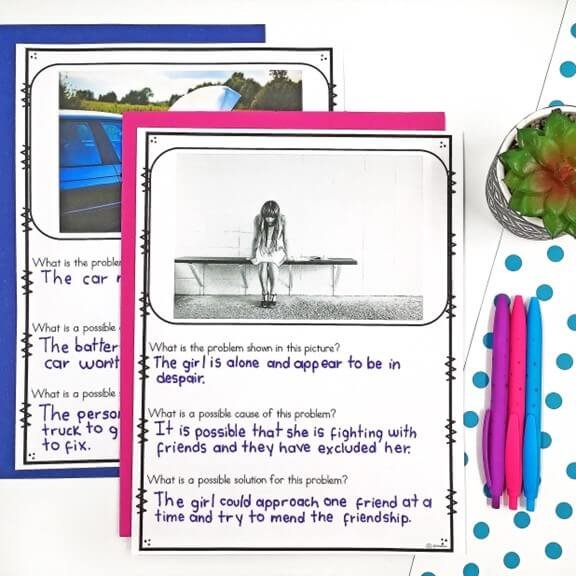 What is the proble
The car
What is a possible
The batter
car won't
What is a possible
The perso
truck to g
to fix.
What is the problem shown in this picture?
The girl is alone and appear to be in
despair.
What is a possible cause of this problem?
It is possible that she is fighting with
friends and they have excluded her.
What is a possible solution for this problem?
The girl could approach one friend at a
time and try to mend the friendship.